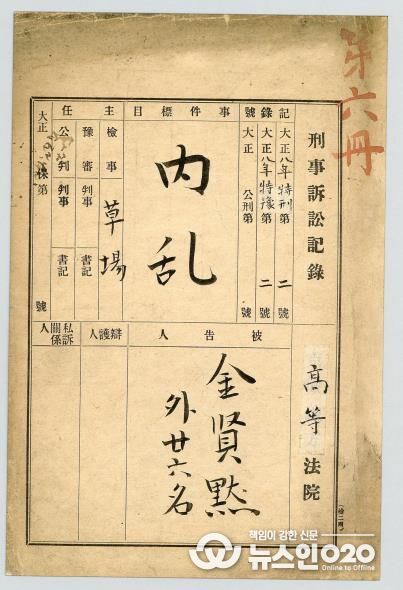 第六冊
刑事訴訟記錄
高等法院
記錄號
大正八年特刑第二號
大正八年特豫第二號
大正 公刑第 號
事件標目
內乱
主任
檢事 草場
豫審判事 書記
公判判事 書記
大正 保第 號
被告人
金賢黙
外廿六名
辯護人
私訴關係人
책임이 강한 신문
뉴스인020
Online to Offline